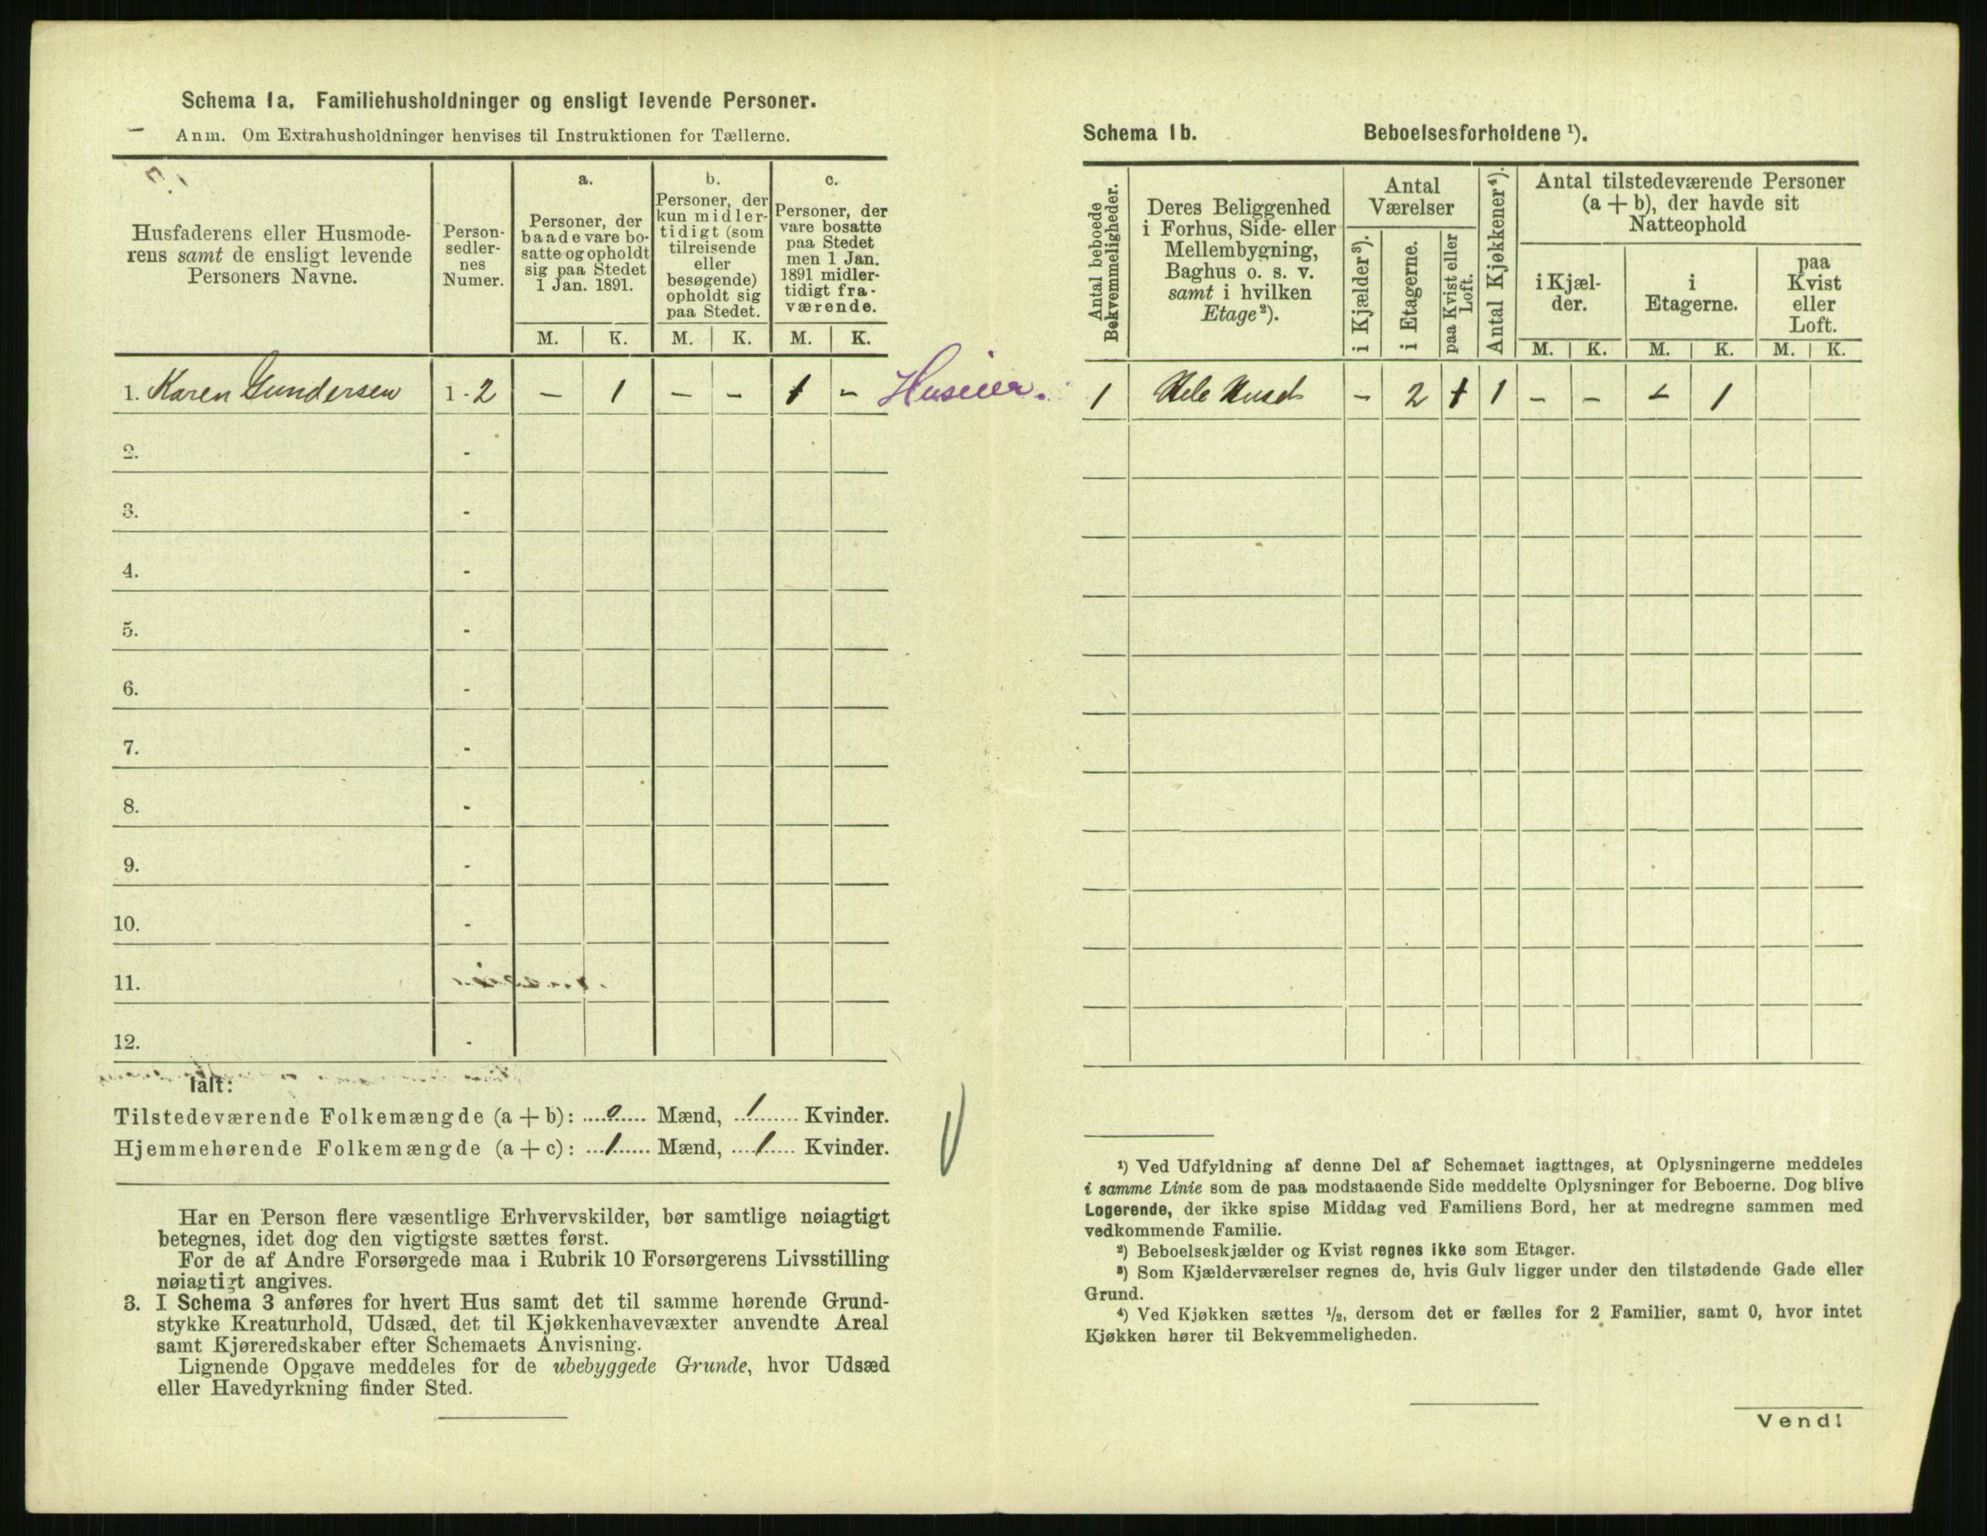 Schema 1a. Familiehusholdninger og ensligt levende Personer.
Anm. Om Extrahusholdninger henvises til Instruktionen for Tællerne.
Husfaderens eller Husmode-
rens samt de ensligt levende
Personers Navne.
Person-
sedler-
nes
Numer.
a.
Personer, der
baade vare bo-
satte og opholdt
sig paa Stedet
1 Jan. 1891.
b.
Personer, der
kun midler-
tidigt (som
tilreisende
eller
besøgende)
opholdt sig
paa Stedet.
c.
Personer, der
vare bosatte
paa Stedet
men 1 Jan.
1891 midler-
tidigt fra-
værende.
M. K. M. K. M. K.
1. Karen Gundersen 1 - 2 - 1 - - 1 - Huseier.
2. -
3. -
4. -
5. -
6. -
7. -
8. -
9. -
10. -
11.
12. -
Ialt:
Tilstedeværende Folkemængde (a + b): 0 Mænd, 1 Kvinder.
Hjemmehørende Folkemængde (a + c): 1 Mænd, 1 Kvinder.
Har en Person flere væsentlige Erhvervskilder, bør samtlige nøiagtigt
betegnes, idet dog den vigtigste sættes først.
For de af Andre Forsørgede maa i Rubrik 10 Forsørgerens Livsstilling
nøiagtigt angives.
3. I Schema 3 anføres for hvert Hus samt det til samme hørende Grund-
stykke Kreaturhold, Udsæd, det til Kjøkkenhavevæxter anvendte Areal
samt Kjøreredskaber efter Schemaets Anvisning.
Lignende Opgave meddeles for de ubebyggede Grunde, hvor Udsæd
eller Havedyrkning finder Sted.
Schema 1b. Beboelsesforholdene ¹).
Antal beboede
Bekvemmeligheder.
Deres Beliggenhed
i Forhus, Side- eller
Mellembygning,
Baghus o. s. v.
samt i hvilken
Etage²).
Antal
Værelser
i Kjælder³).
i Etagerne.
paa Kvist eller
Loft.
Antal Kjøkkener⁴).
Antal tilstedeværende Personer
(a + b), der havde sit
Natteophold
i Kjæl-
der.
i
Etagerne.
paa
Kvist
eller
Loft.
M. K. M. K. M. K.
1 Hele Huset - 2 1 1 - - - 1
¹) Ved Udfyldning af denne Del af Schemaet iagttages, at Oplysningerne meddeles
i samme Linie som de paa modstaaende Side meddelte Oplysninger for Beboerne. Dog blive
Logerende, der ikke spise Middag ved Familiens Bord, her at medregne sammen med
vedkommende Familie.
²) Beboelseskjælder og Kvist regnes ikke som Etager.
³) Som Kjælderværelser regnes de, hvis Gulv ligger under den tilstødende Gade eller
Grund.
⁴) Ved Kjøkken sættes ½, dersom det er fælles for 2 Familier, samt 0, hvor intet
Kjøkken hører til Bekvemmeligheden.
Vend!